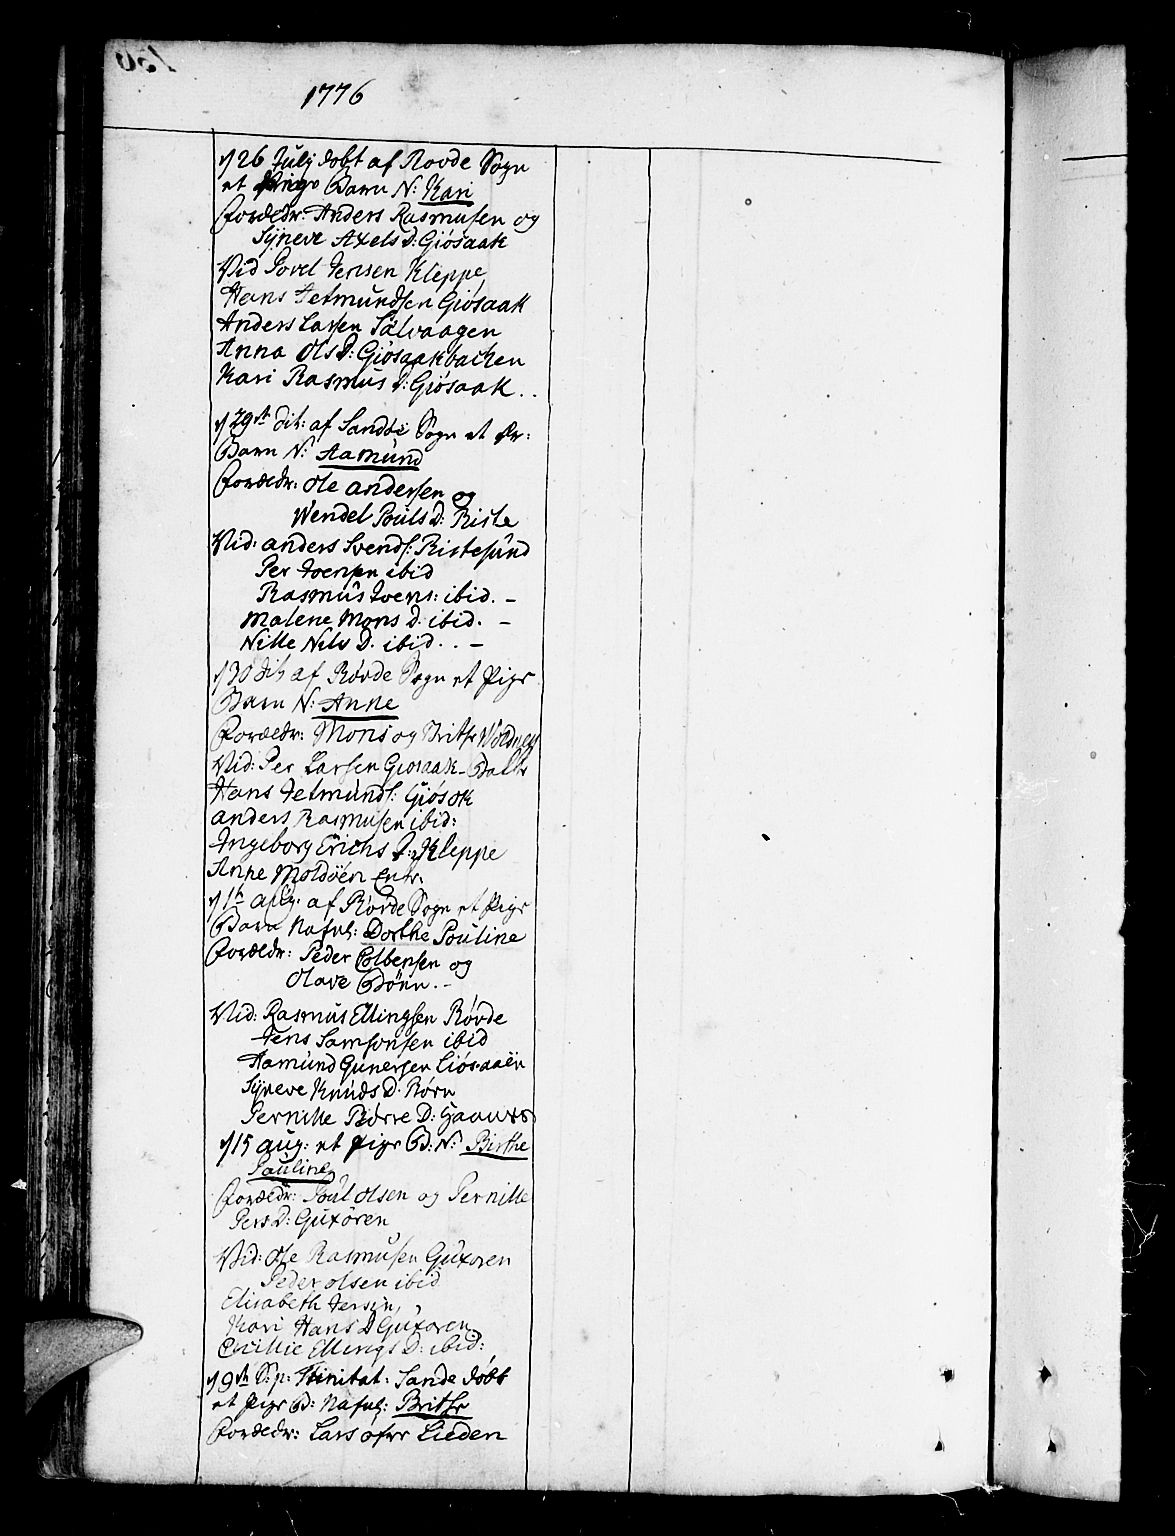 1776
d 26 July døbt af Rovde Sogn
et Pige Barn N: Kari
Forældr: Anders Rasmusen og
Syneve Axels D: Giösaak
Vid Povel Jensen Kleppe
Hans Jetmundsen Giösaak
Anders Larsen Sälvaagen
Anna Ols D: Giösaakbachen
Kari Rasmus D: Giösaak . .
d 29de dit: af Sandöe Sogn et Dr:
Barn N: Aamund
Forældr: Ole andersen og
Wendel Pouls D: Riste
Vid: anders Svends: Ristesund
Per Joensen ibid
Rasmus Ivens: ibid. –
Malene Mons D: ibid. –
Nille Nils D. ibid. . –
d 30 dit af Røvde Sogn et Pige
Barn N: Anne
Forældr: Mons og Brithe
Vid: Per Larsen Giosaak-Bak
Hans Jetmunds: Giösok
anders Rasmusen ibid:
Ingeborg Erichs D: Kleppe
Anne Moldöen
d 1te aug. af Rövde Sogn et Pige
Barn Nafnl: Dorthe Pouline
Forældr: Peder Colbensen og
Olave Bönn. –
Vid: Rasmus Ellingsen Rövde
Jens Samsonsen ibid
Aamund Gunersen Liösaaen
Syneve Knuds D. Nörn
Pernille Pederr D:
d 15 aug: et Pige B: N: Birthe
Pouline
Forældr: Poul Olsen og Pernille
Pers D: Guxören
Vid: Ole Rasmusen Guxoren
Peder olsen ibid
Elisabeth Jersin,
Kari Hans D Guxoren
Cicilie Ellings D: ibid:
d 9de S: p: Trinitat: Sande döbt
et Pige B: Nafnl: Brithe
Forældr: Lars ofrr Lieden